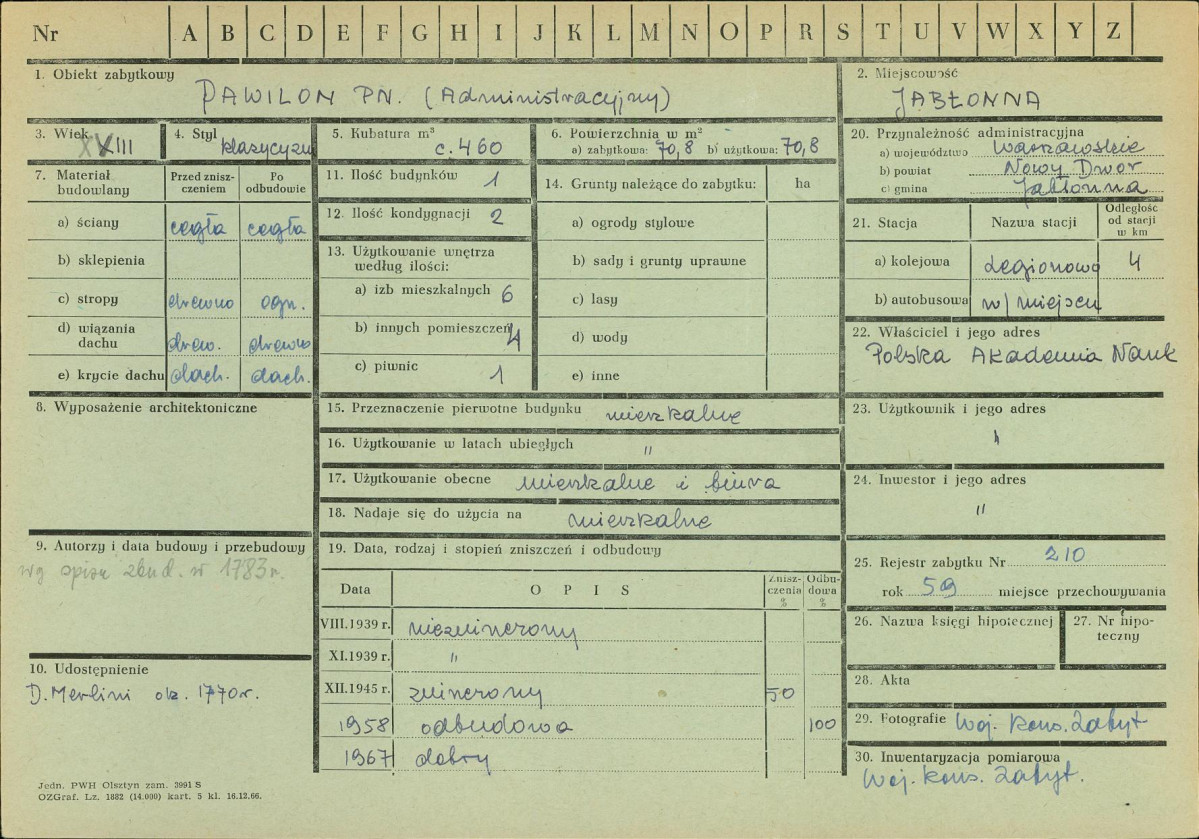 Nr A B C D E F G H I J K L M N O P R S T U V W X Y Z
1. Obiekt zabytkowy
PAWILON PN. (Administracyjny)
2. Miejscowość
JABŁONNA
3. Wiek XVIII
4. Styl klasycyzm
5. Kubatura m³
c. 460
6. Powierzchnia w m²
a) zabytkowa: 70,8 b) użytkowa: 70,8
20. Przynależność administracyjna
a) województwo Warszawskie
b) powiat Nowy Dwór
c) gmina Jabłonna
7. Materiał budowlany
Przed zniszczeniem
Po odbudowie
a) ściany cegła cegła
b) sklepienia
c) stropy drewno ogn.
d) wiązania dachu drew. drewno
e) krycie dachu dach. dach.
11. Ilość budynków 1
12. Ilość kondygnacji 2
13. Użytkowanie wnętrza według ilości:
a) izb mieszkalnych 6
b) innych pomieszczeń 4
c) piwnic 1
14. Grunty należące do zabytku: ha
a) ogrody stylowe
b) sady i grunty uprawne
c) lasy
d) wody
e) inne
21. Stacja
Nazwa stacji
Odległość od stacji w km
a) kolejowa Legionowo 4
b) autobusowa w/miejscu
22. Właściciel i jego adres
Polska Akademia Nauk
8. Wyposażenie architektoniczne
15. Przeznaczenie pierwotne budynku mieszkalne
16. Użytkowanie w latach ubiegłych "
17. Użytkowanie obecne mieszkalne i biura
18. Nadaje się do użycia na mieszkalne
23. Użytkownik i jego adres
"
24. Inwestor i jego adres
"
9. Autorzy i data budowy i przebudowy
wg spisu zbud. w 1783 r.
10. Udostępnienie
D. Merlini ok. 1770 r.
19. Data, rodzaj i stopień zniszczeń i odbudowy
Data
O P I S
Zniszczenia %
Odbudowa %
VIII.1939 r. niezniszczony
XI.1939 r. "
XII.1945 r. zniszczony 50
1958 odbudowa 100
1967 dobry
25. Rejestr zabytku Nr 210
rok 59 miejsce przechowywania
26. Nazwa księgi hipotecznej
27. Nr hipoteczny
28. Akta
29. Fotografie Woj. Kons. Zabyt
30. Inwentaryzacja pomiarowa
Woj. Kons. Zabyt.
Jedn. PWH Olsztyn zam. 3991 S
OZGraf. Lz. 1882 (14.000) kart. 5 kl. 16.12.66.